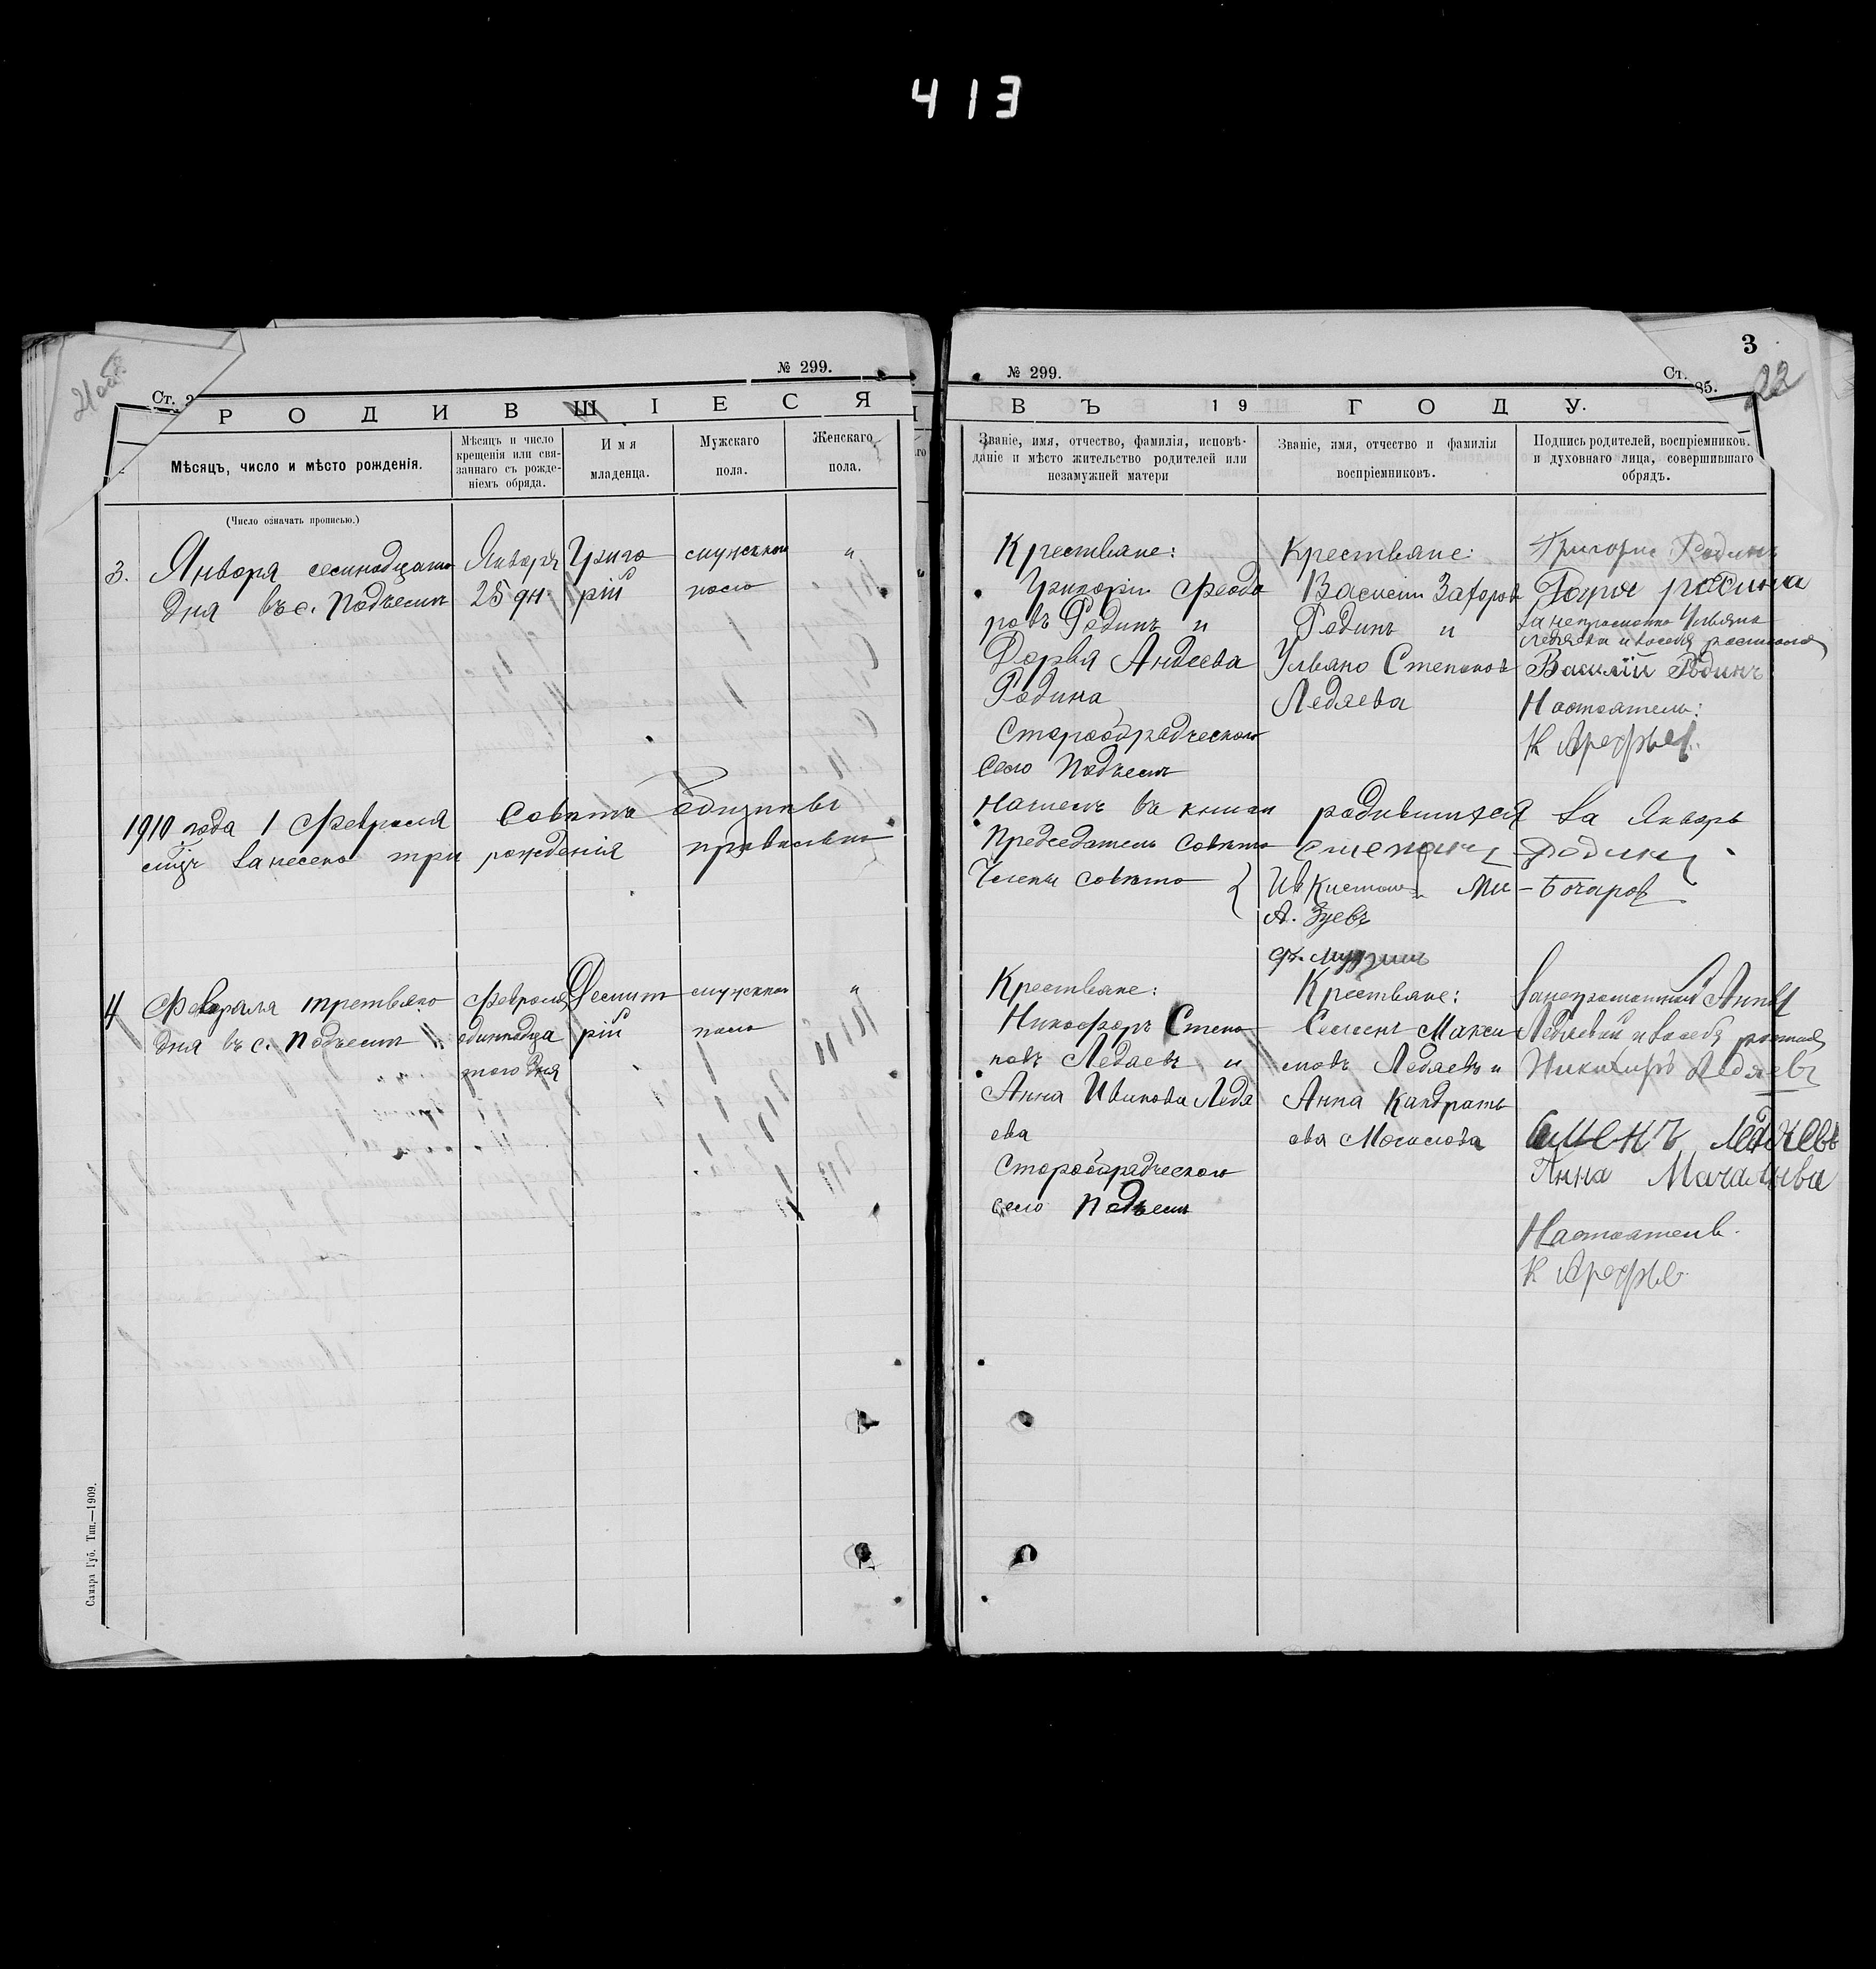 413
№ 299.
Ст.
РОДИВШІЕСЯ
Мѣсяцъ, число и мѣсто рожденія.
Мѣсяцъ и число
крещенія или свя-
заннаго съ рожде-
ніемъ обряда.
Имя
младенца.
Мужскаго
пола.
Женскаго
пола.
(Число означать прописью.)
3.
Января семнадцатаго
дня въ с. Подъемъ
Января
25 дн
Григо
рій
мужскаго
пола
"
1910 года 1 Февраля Совѣтъ общины
сицъ занесено три рожденія правильно
4
Февраля третьяго
дня въ с. Подъемъ
Февраля
одиннадца
таго дня
Демит
рій
мужскаго
пола
"
Самара Губ. Тип.—1909.
3
22
№ 299.
Ст. 85.
ВЪ 19 ГОДУ.
Званіе, имя, отчество, фамилія, исповѣ-
даніе и мѣсто жительство родителей или
незамужней матери
Званіе, имя, отчество и фамилія
воспріемниковъ.
Подпись родителей, воспріемников.
и духовнаго лица, совершившаго
обрядъ.
Крестьяне:
Григорій Феодо
ровъ Родинъ и
Дарья Андеева
Родина
Старообрядческаго
село Подъемъ
Крестьяне:
Василій Захоровъ
Родинъ и
Ульяно Степановъ
Ледяева
Григорие Родинъ
родина
за неграмотно Ульяна
Ледяева и восебя росписался
Василій Родинъ
Настоятель:
К Арефьев
въ книги родившихся за Январь
Председатель Совѣта Степанъ Родинъ
Члены совѣта
Ив
А. Зуевъ
Бочаров
Крестьяне:
Никофоръ Степа
новъ Ледяевъ и
Анна Иванова Ледя
ева
Старообрядческаго
село Подъемъ
Крестьяне:
Семенъ Макси
мовъ Ледяевъ и
Анна Кандрать
ева Мочалова
За неграмотной Анны
Ледяевой и восебя
Никифиръ Ледяевъ
Семенъ Ледяевъ
Анна Мачалыва
Настоятель.
К Арефьев